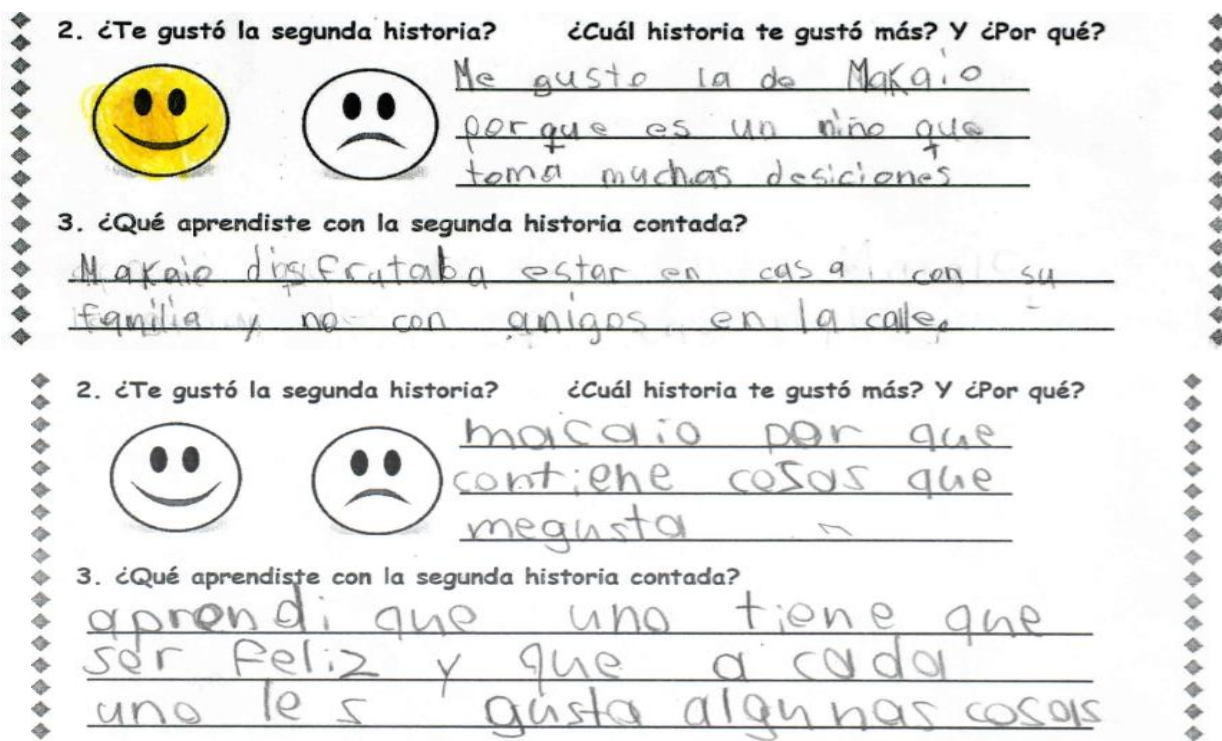 2. ¿Te gustó la segunda historia? ¿Cuál historia te gustó más? Y ¿Por qué?
Me gusto la de Makaio
porque es un niño que
toma muchas desiciones
3. ¿Qué aprendiste con la segunda historia contada?
Makaio disfrutaba estar en casa con su
familia y no con amigos en la calle.
2. ¿Te gustó la segunda historia? ¿Cuál historia te gustó más? Y ¿Por qué?
macaio por que
contiene cosas que
megusta
3. ¿Qué aprendiste con la segunda historia contada?
aprendi que uno tiene que
ser feliz y que a cada
uno le s gusta algunas cosas